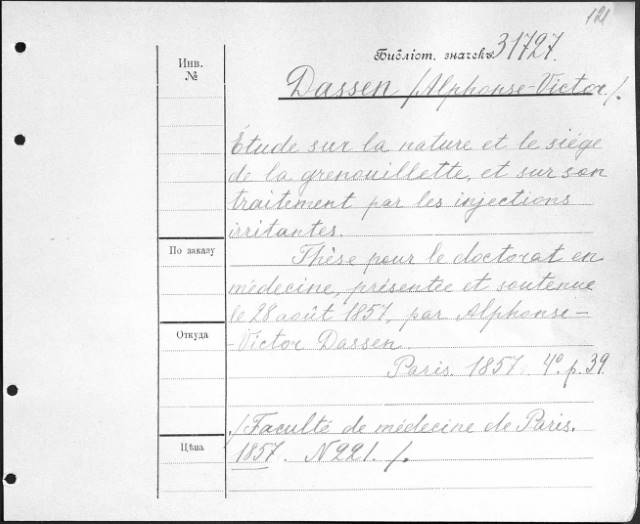 121
Инв. №
Библіот. значекъ 31727.
Dassen /Alphonse-Victor/.
Étude sur la nature et le siége
de la grenouillette, et sur son
traitement par les injections
irritantes.
По заказу
Thèse pour le doctorat en
médecine, présentée et soutenue
le 28 août 1857, par Alphonse-
-Victor Dassen.
Откуда
Paris. 1857. 4º. p. 39.
/Faculté de médecine de Paris.
Цѣна
1857. N 221. /.